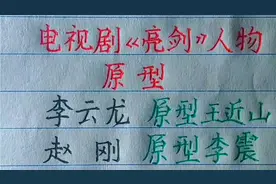 电视剧《亮剑》人物
原型
李云龙 原型王近山
赵刚 原型李震